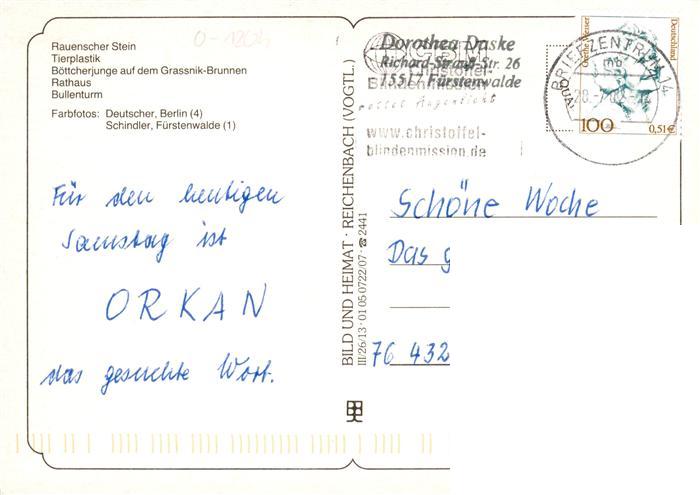 O-1204
Rauenscher Stein
Tierplastik
Böttcherjunge auf dem Grassnik-Brunnen
Rathaus
Bullenturm
Farbfotos: Deutscher, Berlin (4)
Schindler, Fürstenwalde (1)
Für den heutigen
Samstag ist
ORKAN
das gesuchte Wort.
BILD UND HEIMAT · REICHENBACH (VOGTL.)
III/26/13 · 01 05 0722/07 · ☎ 2441
Dorothea Daske
Richard-Strauß-Str. 26
15517 Fürstenwalde
Christoffel-
Blindenmission
rettet Augenlicht
www.christoffel-
blindenmission.de
BRIEFZENTRUM
Deutschland
100
0,51€
Schöne Woche
Das g
76 432